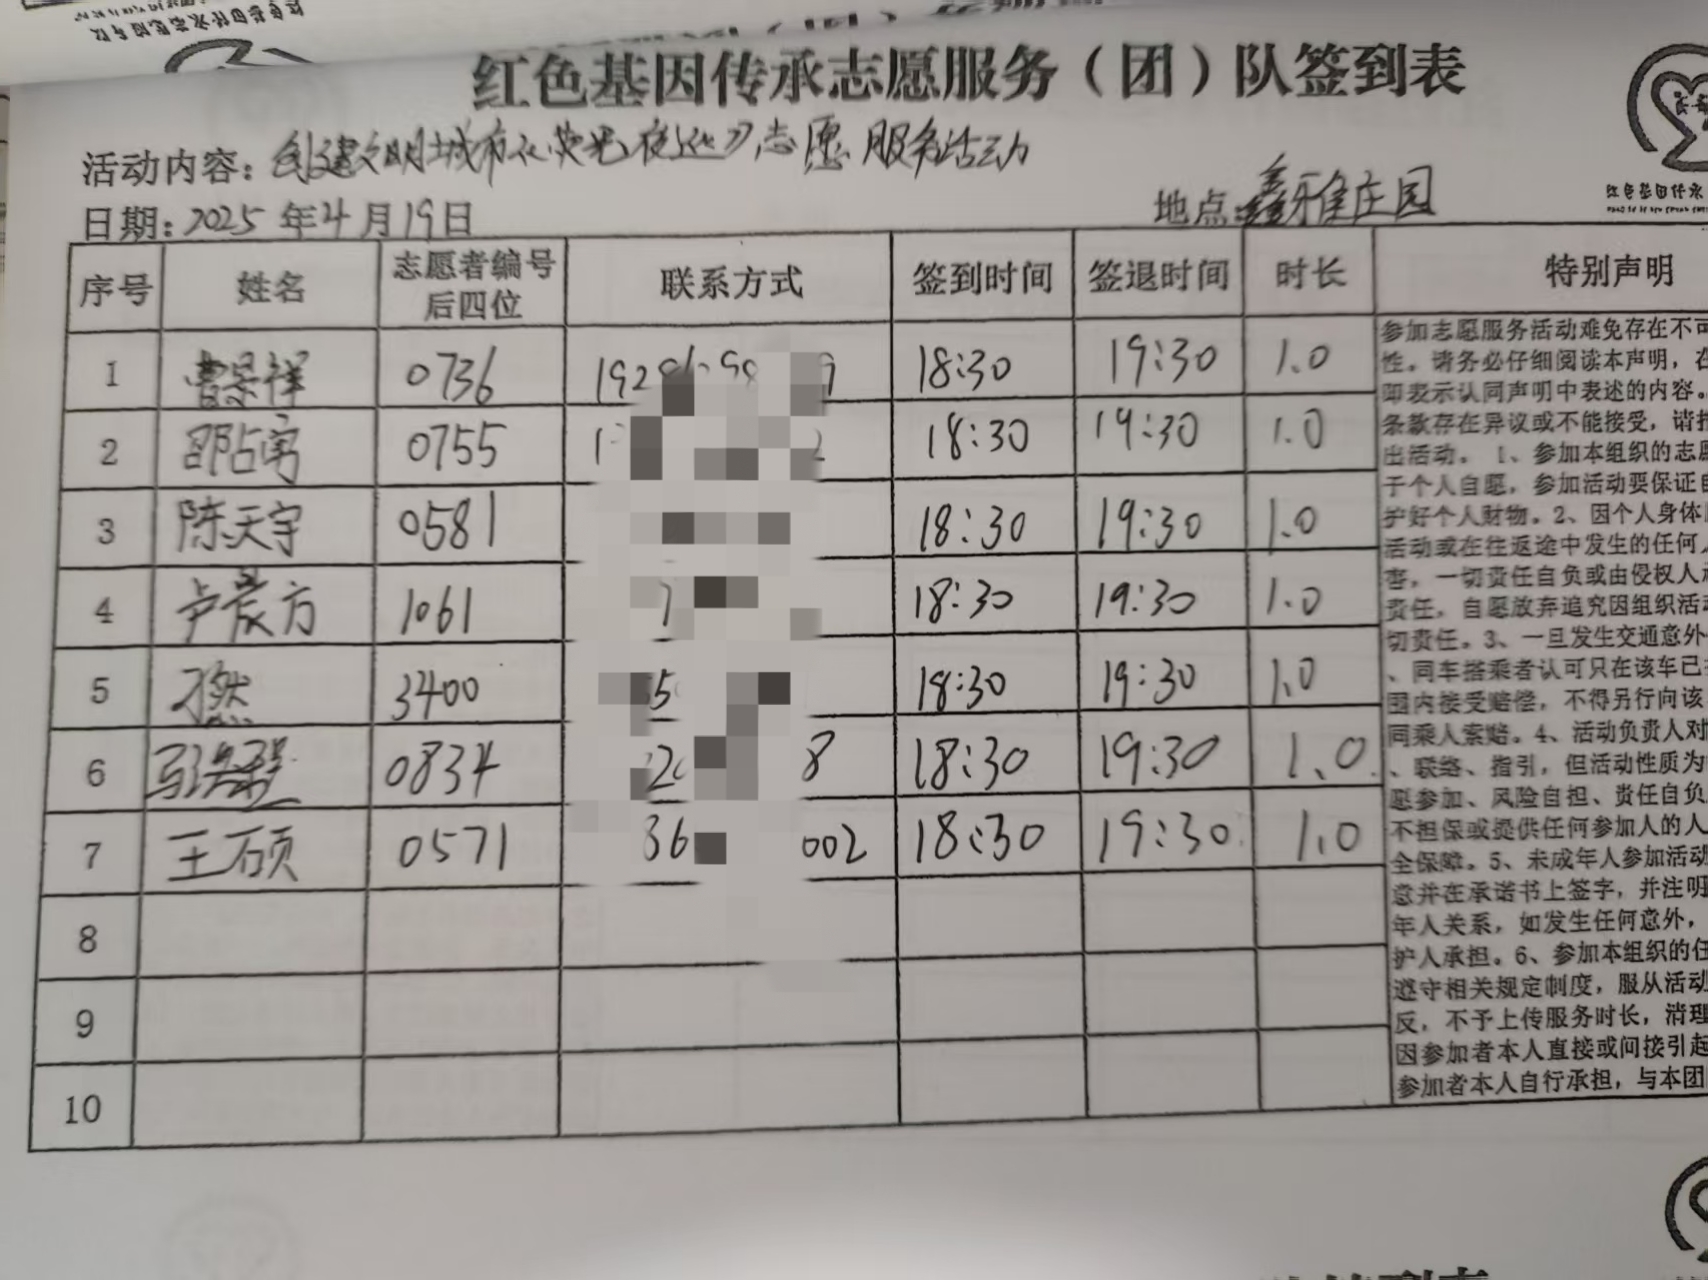 红色基因传承志愿服务（团）队签到表
活动内容：创建文明城市《荧光夜巡》志愿服务活动
日期：2025年4月19日 地点 鑫雅庄园
红色基因传承
序号 姓名 志愿者编号后四位 联系方式 签到时间 签退时间 时长 特别声明
1 曹景祥 0736 18:30 19:30 1.0
2 邵占勇 0755 18:30 19:30 1.0
3 陈天宇 0581 18:30 19:30 1.0
4 卢宸方 1061 18:30 19:30 1.0
5 3400 5 18:30 19:30 1.0
6 0834 8 18:30 19:30 1.0
7 王硕 0571 36 002 18:30 19:30 1.0
8
9
10
参加志愿服务活动难免存在不可
性。请务必仔细阅读本声明，在
即表示认同声明中表述的内容。
条款存在异议或不能接受，请
出活动。1、参加本组织的志愿
于个人自愿，参加活动要保证
护好个人财物。2、因个人身体
活动或在往返途中发生的任何
害，一切责任自负或由侵权人
责任，自愿放弃追究因组织活动
切责任。3、一旦发生交通意外
、同车搭乘者认可只在该车已
围内接受赔偿，不得另行向该
同乘人索赔。4、活动负责人对
、联络、指引，但活动性质为
愿参加、风险自担、责任自负
不担保或提供任何参加人的人
全保障。5、未成年人参加活动
意并在承诺书上签字，并注明
年人关系，如发生任何意外，
护人承担。6、参加本组织的任
遵守相关规定制度，服从活动
反，不予上传服务时长，清理
因参加者本人直接或间接引起
参加者本人自行承担，与本团